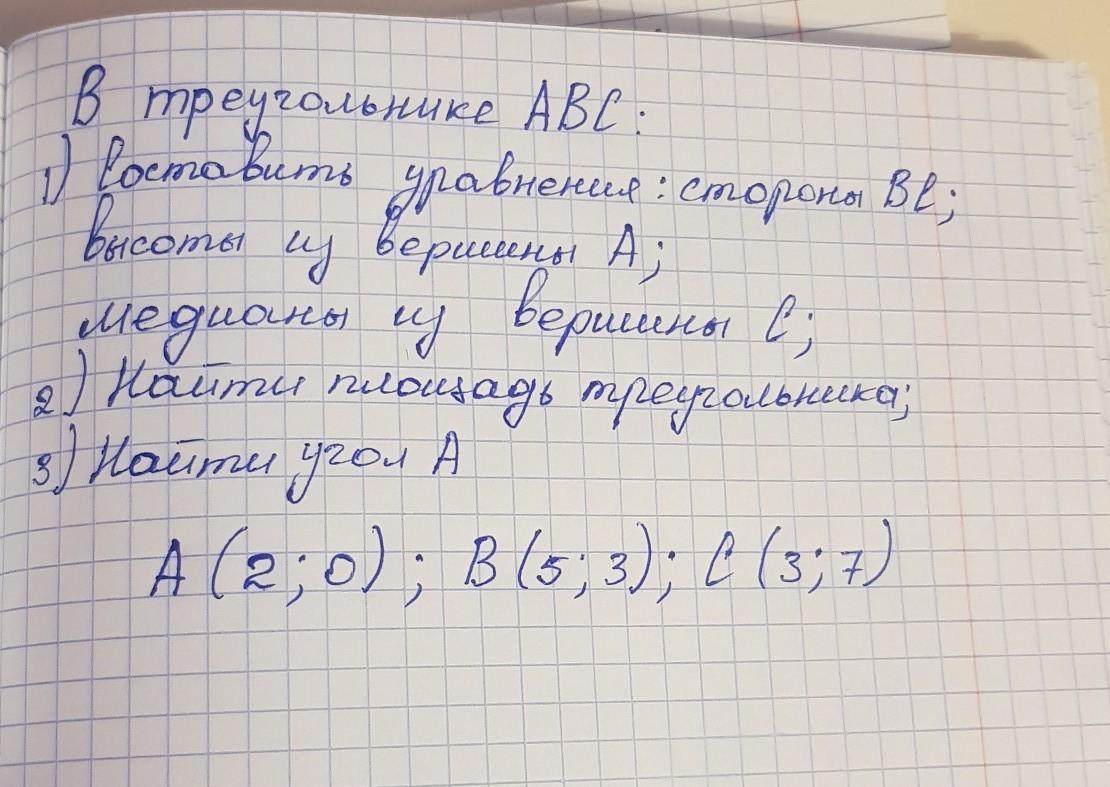 В треугольнике ABC:
1) Составить уравнения: стороны BC;
высоты из вершины A;
медианы из вершины C;
2) Найти площадь треугольника;
3) Найти угол A
A (2; 0); B (5; 3); C (3; 7)